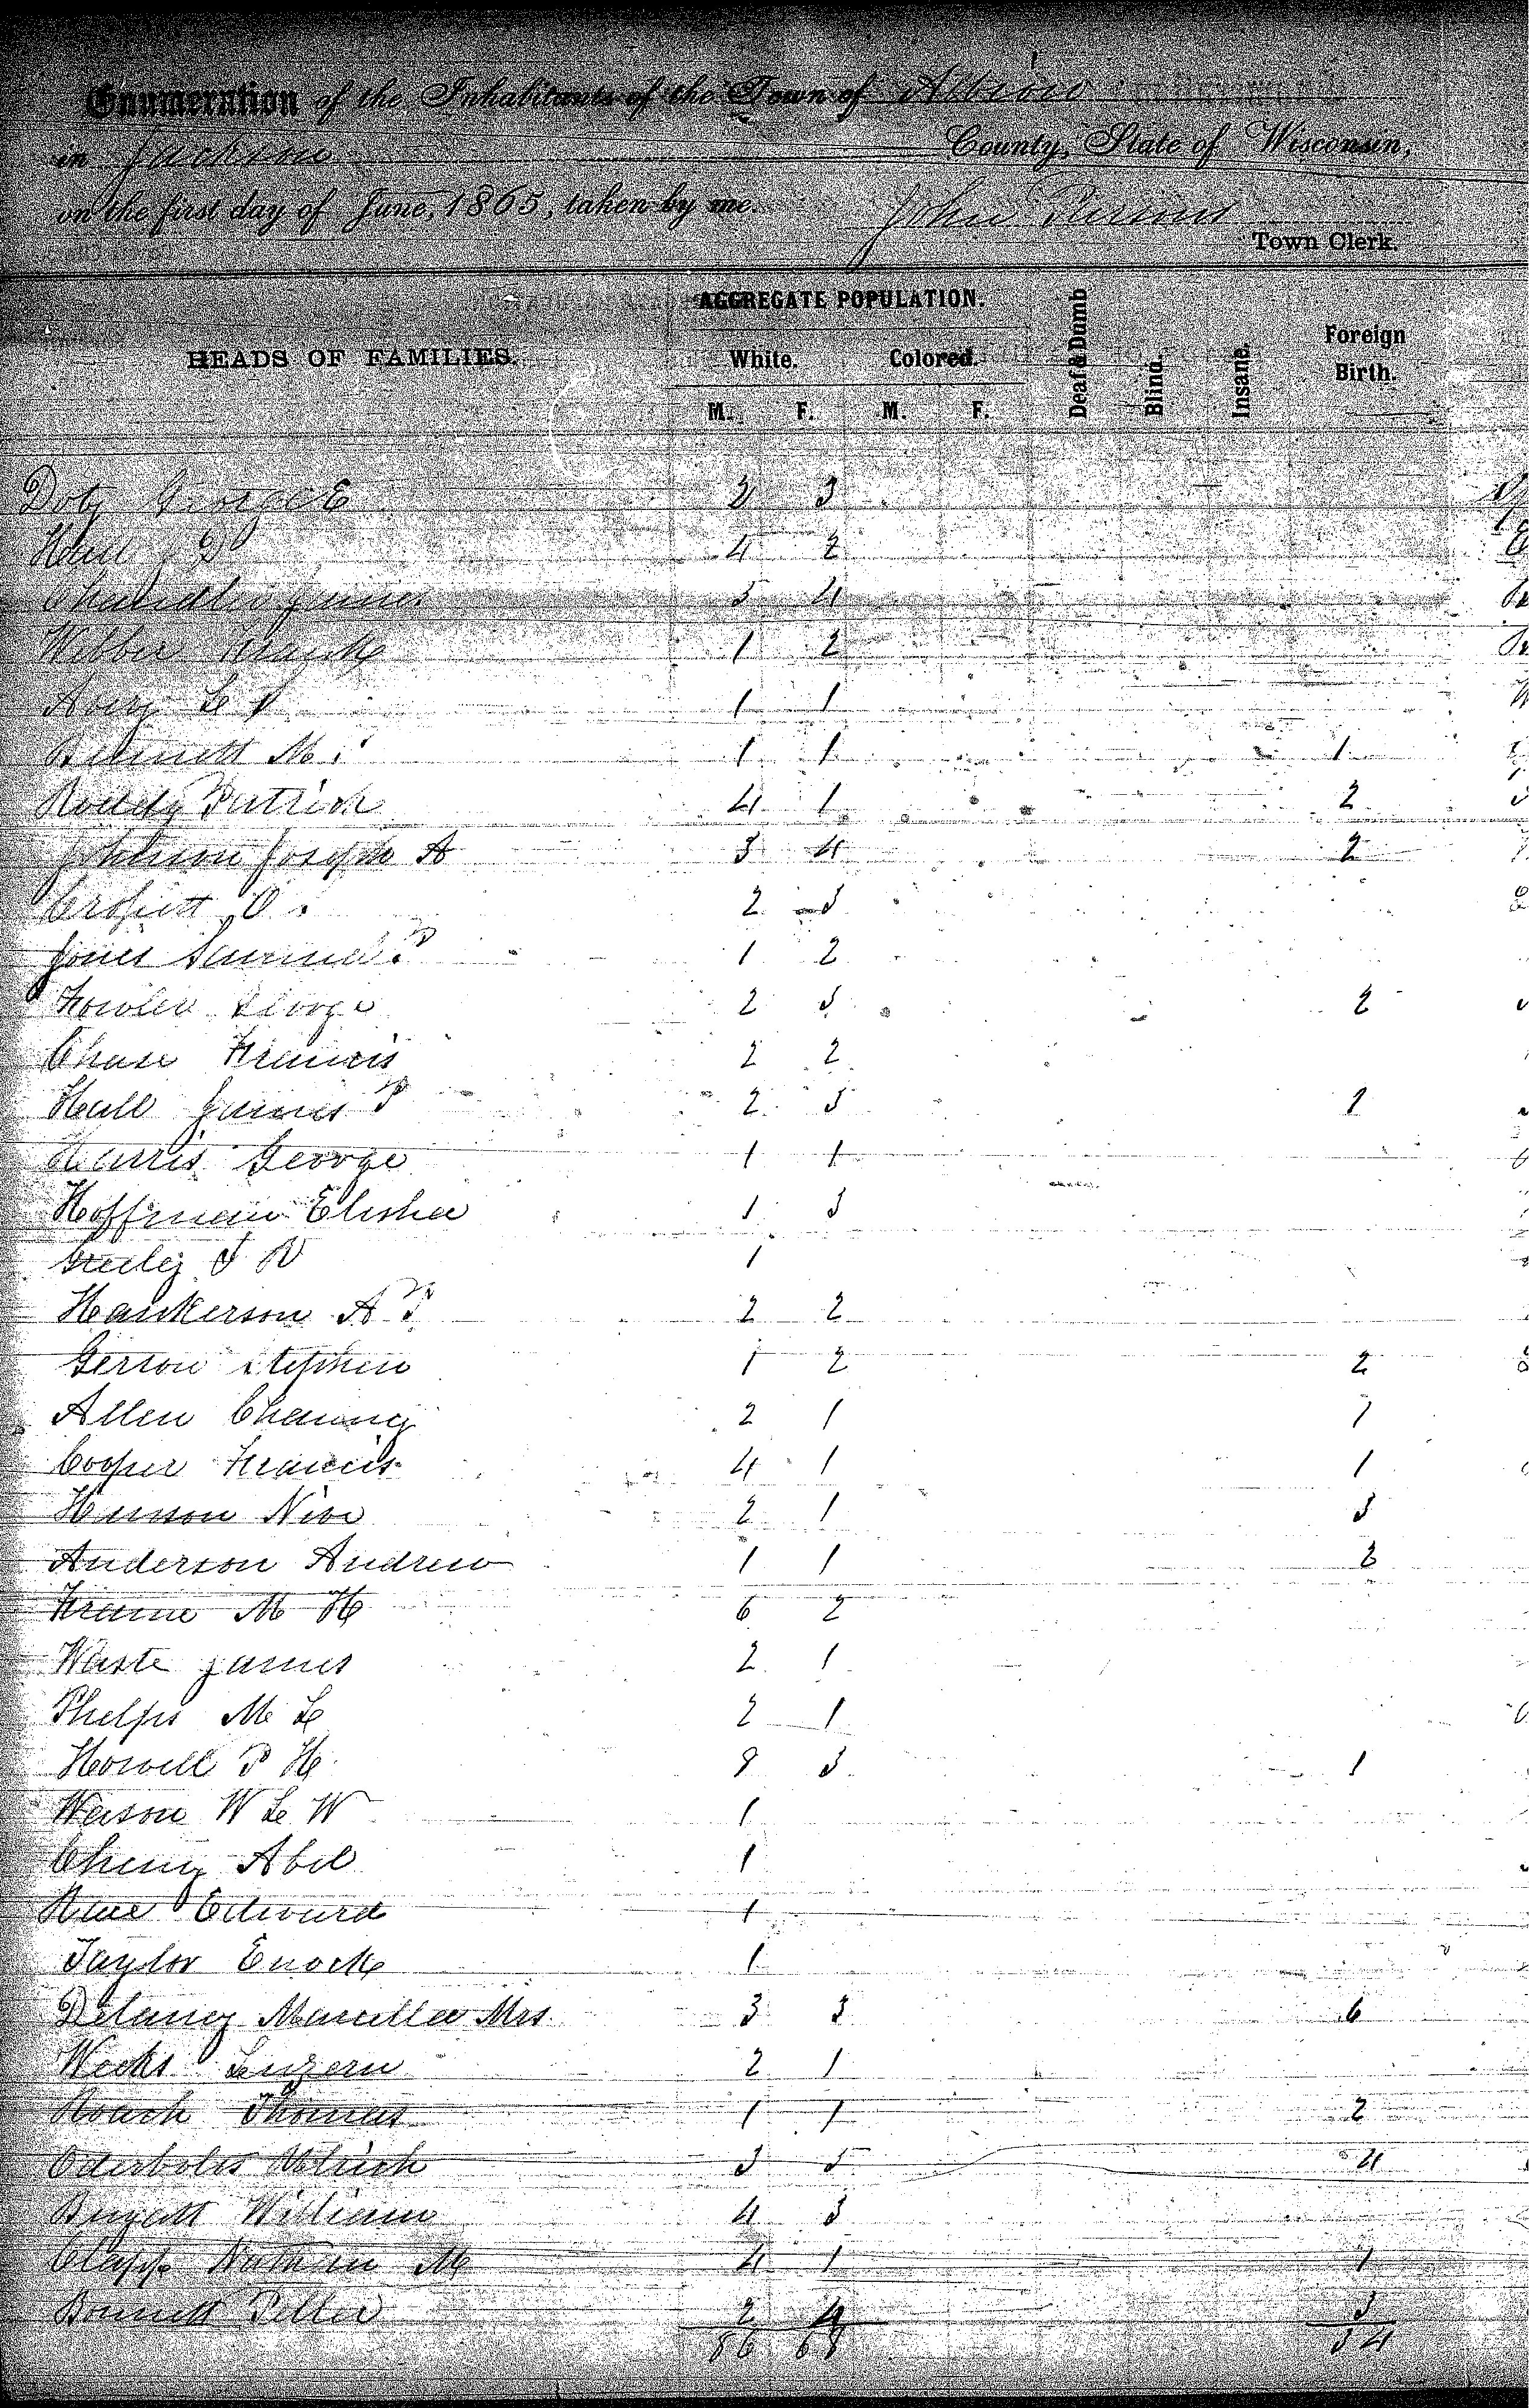 Enumeration of the Inhabitants of the Town of Albion
in Jackson County, State of Wisconsin,
on the first day of June, 1865, taken by me. John Parsons
Town Clerk.
AGGREGATE POPULATION.
HEADS OF FAMILIES. White. Colored. Deaf & Dumb Blind. Insane. Foreign Birth.
M. F. M. F.
Doty George E 2 3
Hall D 4 2
Chandler James 5 4
Wilber Frank 1 2
Avery L 1 1
Bennett M. 1 1 1
Roddy Patrick 4 1 2
Johnson Joseph A 3 4 2
O. 2 3
Jones Samuel P 1 2
Fowler George 2 3 2
Chase Francis 2 2
Hall James P 2 3 1
Harris George 1 1
Hoffman Elisha 1 3
1
Hankerson A P 2 2
Gerson Stephen 1 2 2
Allen Chauncy 2 1 1
Cooper Francis 4 1 1
2 1 3
Anderson Andrew 1 1 2
Frame M H 6 2
Waste James 2 1
Phelps M L 2 1
Howell P H 8 3 1
Wason W L W 1
Cheny Abel 1
Edward 1
Taylor Enoch 1
Delaney Marcella Mrs. 3 3 6
Weeks Luzern 2 1
Roach Thomas 1 1 2
Ulrich 3 5 4
William 4 3
Clapp Nathan M 4 1 1
2 4 3
86 68 34